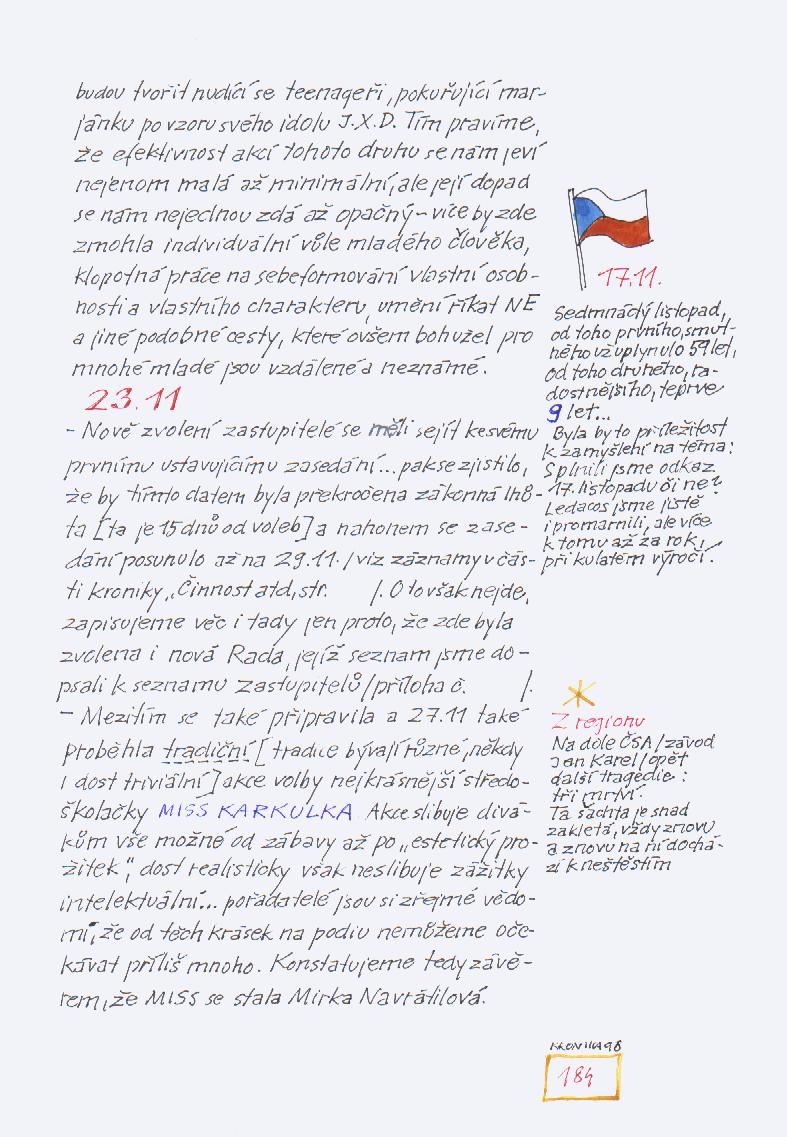 budou tvořit nudící se teenageři, pokuřující mar-
jánku po vzoru svého idolu J.X.D. Tím pravíme,
že efektivnost akcí tohoto druhu se nám jeví
nejenom malá až minimální, ale její dopad
se nám nejednou zdá až opačný - více by zde
zmohla individuální vůle mladého člověka,
klopotná práce na sebeformování vlastní osob-
nosti a vlastního charakteru, umění říkat NE
a jiné podobné cesty, které ovšem bohužel pro
mnohé mladé jsou vzdálené a neznámé.
23.11
- Nově zvolení zastupitelé se měli sejít ke svému
prvnímu ustavujícímu zasedání... pak se zjistilo,
že by tímto datem byla překročena zákonná lhů-
ta [ta je 15 dnů od voleb] a nahonem se zase-
dání posunulo až na 29.11. /viz záznamy v čás-
ti kroniky „Činnost atd, str. /. O to však nejde,
zapisujeme věc i tady jen proto, že zde byla
zvolena i nová Rada, jejíž seznam jsme do-
psali k seznamu zastupitelů /příloha č. /.
- Mezitím se také připravila a 27.11 také
proběhla tradiční [tradice bývají různé, někdy
i dost triviální] akce volby nejkrásnější středo-
školačky MISS KARKULKA. Akce slibuje divá-
kům vše možné od zábavy až po „estetický pro-
žitek“, dost realisticky však neslibuje zážitky
intelektuální... pořadatelé jsou si zřejmě vědo-
mi, že od těch krásek na podiu nemůžeme oče-
kávat příliš mnoho. Konstatujeme tedy závě-
rem, že MISS se stala Mirka Navrátilová.
17.11.
Sedmnáctý listopad,
od toho prvního, smut-
ného už uplynulo 59 let,
od toho druhého, ra-
dostnějšího, teprve
9 let...
Byla by to příležitost
k zamyšlení na téma:
Splnili jsme odkaz
17. listopadu či ne?
Ledacos jsme jistě
i promarnili, ale více
k tomu až za rok,
při kulatém výročí.
Z regionu
Na dole ČSA /závod
Jan Karel/ opět
další tragédie:
tři mrtví.
Ta šachta je snad
zakletá, vždy znovu
a znovu na ní dochá-
zí k neštěstím
KRONIKA 98
184